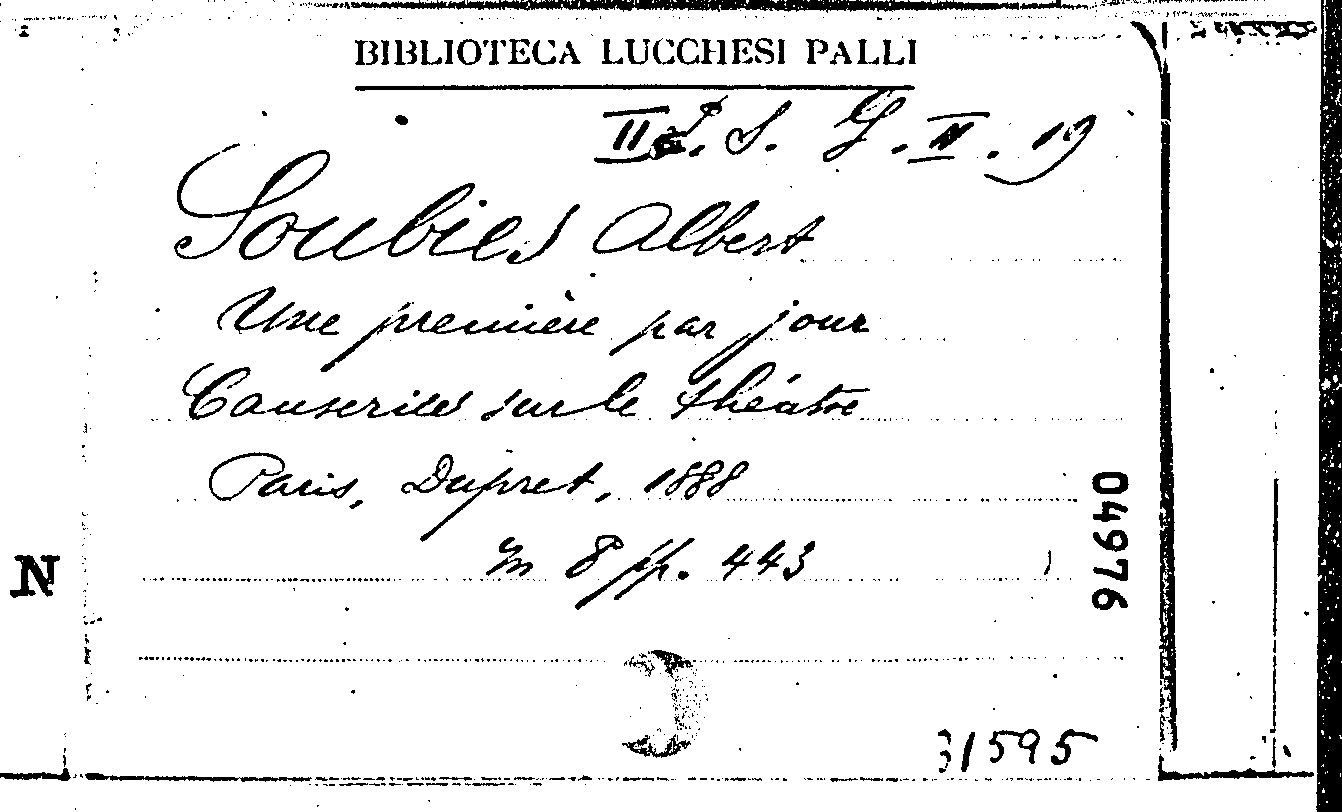 BIBLIOTECA LUCCHESI PALLI
II S. G. II. 19
Soubies Albert
Une première par jour
Causeries sur le théâtre
Paris, Dupret, 1888
In 8 pp. 443
04976
N
31595